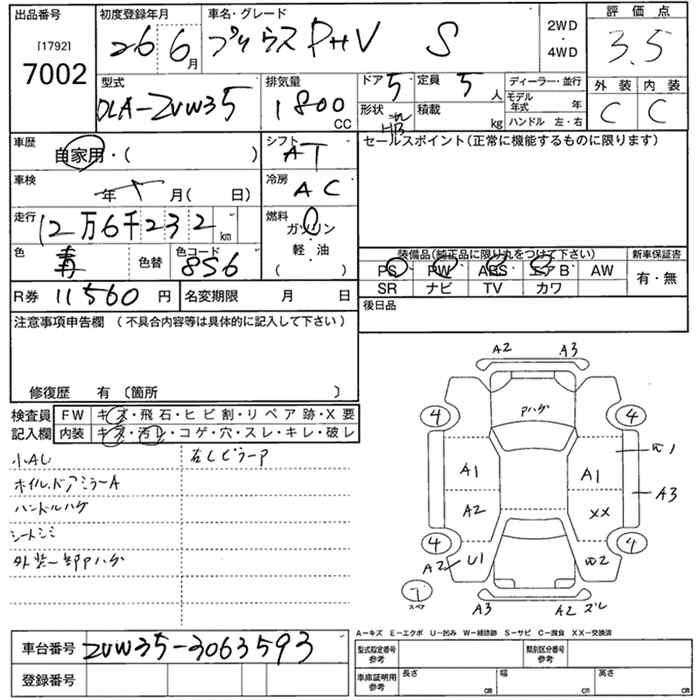 出品番号
[1792]
7002
初度登録年月
26 6月
車名・グレード
プリウス PHV S
2WD
・
4WD
評価点
3.5
外装 内装
C C
型式
DLA-ZVW35
排気量
1800 CC
ドア 5
定員 5 人
形状 HB
積載 kg
ディーラー・並行
モデル年式 年
ハンドル 左・右
車歴
自家用・( )
シフト
AT
セールスポイント(正常に機能するものに限ります)
車検
年 月( 日)
冷房
AC
走行
12万6千232 km
燃料
ガソリン
軽・油
( )
色
青
色替
色コード
856
装備品(純正品に限り丸をつけて下さい)
新車保証書
PS PW ABS エアB AW
SR ナビ TV カワ
有・無
R券 11560 円
名変期限 月 日
後日品
注意事項申告欄 (不具合内容等は具体的に記入して下さい)
修復歴 有〔箇所 〕
検査員記入欄
FW キズ・飛石・ヒビ割・リペア跡・X要
内装 キズ・汚レ・コゲ・穴・スレ・キレ・破レ
小AU
ホイル、ドアミラーA
ハンドルハゲ
シートシミ
外装一部Pハゲ
A2 A3
Pハゲ
4 4
A1 A1 W1
A2 XX A3
4 4
A2 U1 W2
T
スペア
A3 A2 ズレ
A−キズ E−エクボ U−凹み W−補修跡 S−サビ C−腐食 XX−交換済
車台番号 ZVW35-3063593
登録番号
型式指定番号
参考
類別区分番号
参考
車庫証明用
参考
長さ cm
幅 cm
高さ cm